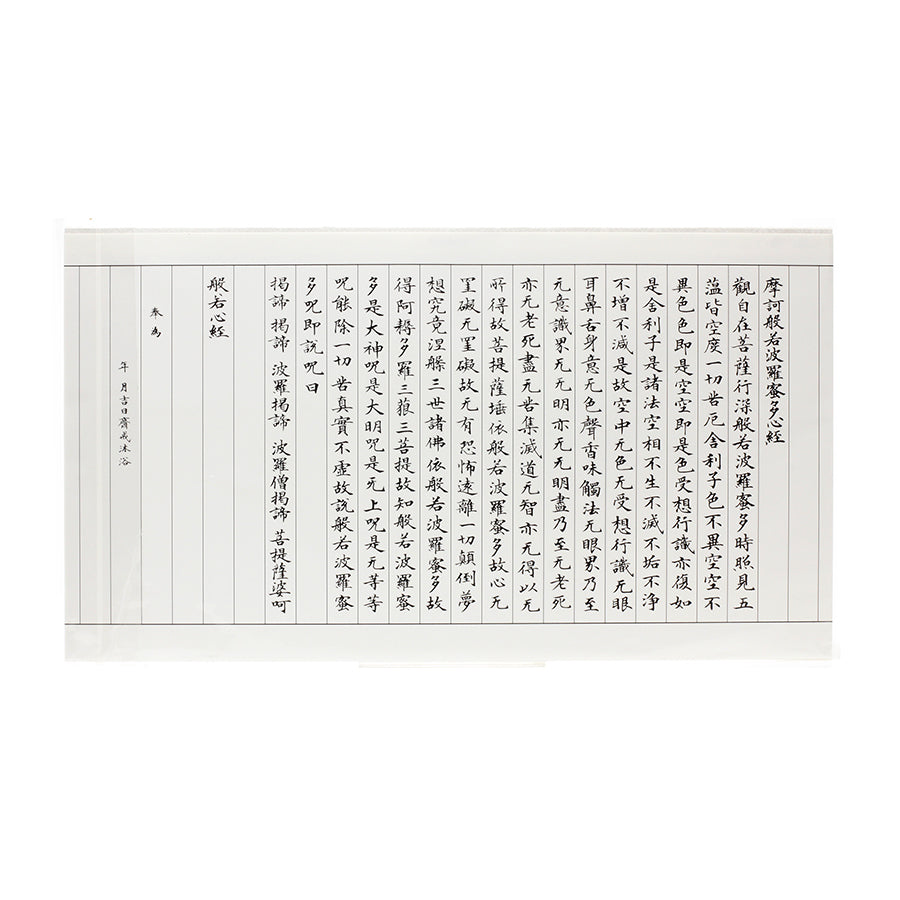 摩訶般若波羅蜜多心經
觀自在菩薩行深般若波羅蜜多時照見五
薀皆空度一切苦厄舍利子色不異空空不
異色色即是空空即是色受想行識亦復如
是舍利子是諸法空相不生不滅不垢不浄
不增不減是故空中无色无受想行識无眼
耳鼻舌身意无色聲香味觸法无眼界乃至
无意識界无无明亦无无明盡乃至无老死
亦无老死盡无苦集滅道无智亦无得以无
所得故菩提薩埵依般若波羅蜜多故心无
罣礙无罣礙故无有恐怖遠離一切顛倒夢
想究竟涅槃三世諸佛依般若波羅蜜多故
得阿耨多羅三藐三菩提故知般若波羅蜜
多是大神呪是大明呪是无上呪是无等等
呪能除一切苦真實不虛故說般若波羅蜜
多呪即說呪曰
揭諦 揭諦 波羅揭諦 波羅僧揭諦 菩提薩婆呵
般若心經
奉為
年 月吉日齋戒沐浴